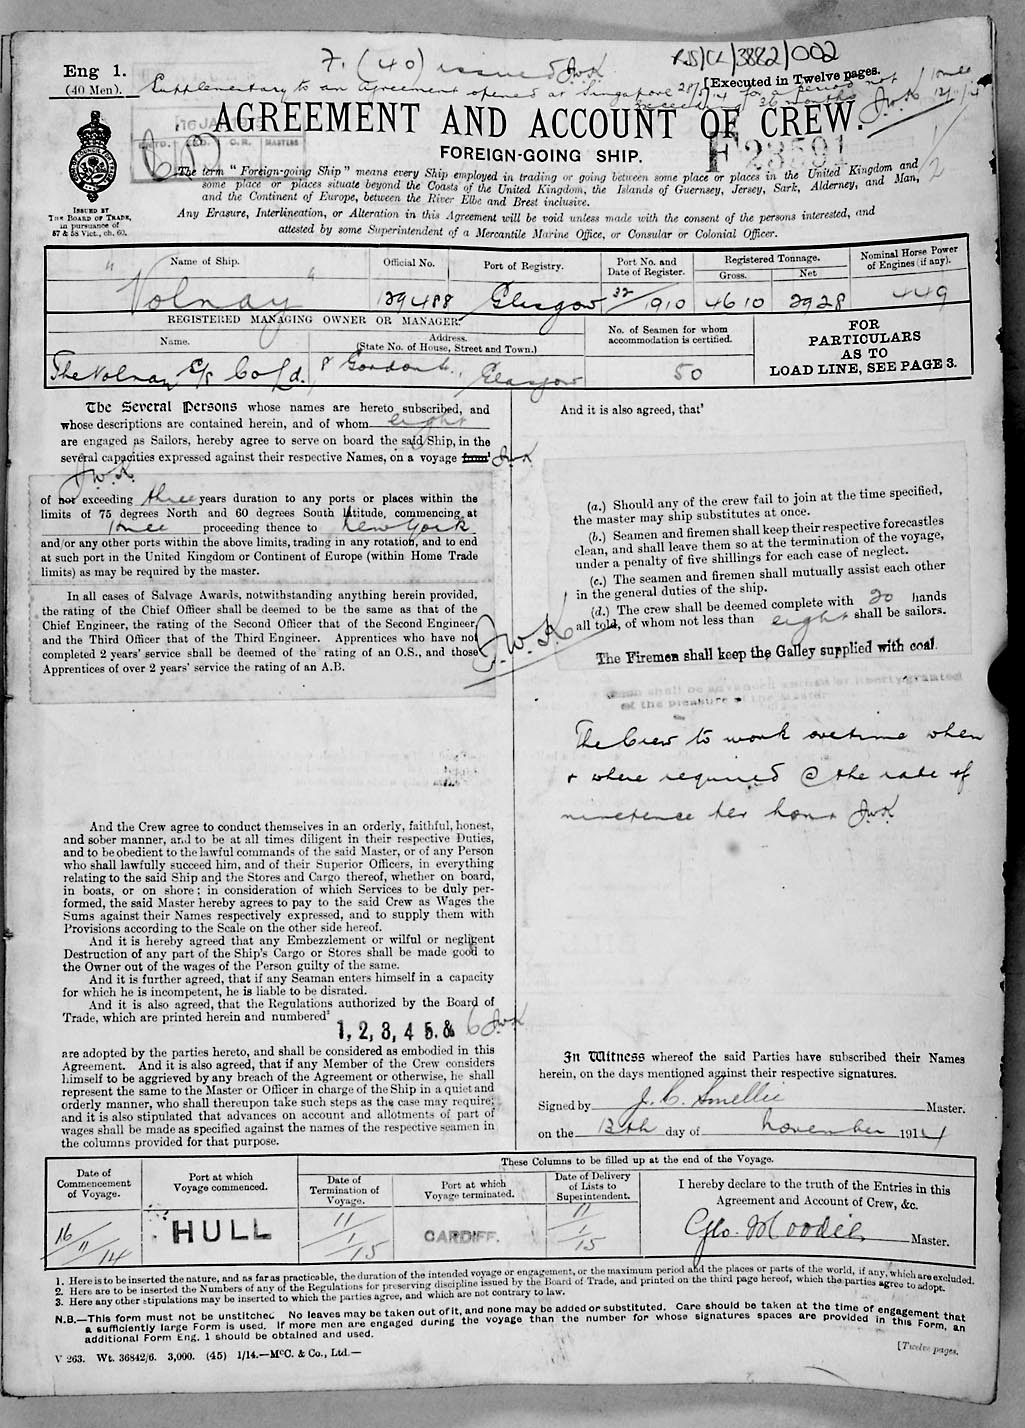 Eng 1.
(40 Men).
7. (40) issued JWK
RSS/CL/3882/002
[Executed in Twelve pages.
Supplementary to an agreement opened at Singapore 28/5/14 for a period not
exceeding 36 months JWK
AGREEMENT AND ACCOUNT OF CREW.
FOREIGN-GOING SHIP.
F 23591
ISSUED BY
THE BOARD OF TRADE,
in pursuance of
57 & 58 Vict., ch. 60.
The term "Foreign-going Ship" means every Ship employed in trading or going between some place or places in the United Kingdom and
some place or places situate beyond the Coasts of the United Kingdom, the Islands of Guernsey, Jersey, Sark, Alderney, and Man,
and the Continent of Europe, between the River Elbe and Brest inclusive.
Any Erasure, Interlineation, or Alteration in this Agreement will be void unless made with the consent of the persons interested, and
attested by some Superintendent of a Mercantile Marine Office, or Consular or Colonial Officer.
Name of Ship. Official No. Port of Registry. Port No. and Date of Register. Registered Tonnage. Gross. Net Nominal Horse Power of Engines (if any).
"Volnay" 129488 Glasgow 32/1910 4610 2928 449
REGISTERED MANAGING OWNER OR MANAGER.
Name. Address. (State No. of House, Street and Town.) No. of Seamen for whom accommodation is certified.
The Volnay S/S Co Ld. 8 Gordon St., Glasgow 50
FOR
PARTICULARS
AS TO
LOAD LINE, SEE PAGE 3.
The Several Persons whose names are hereto subscribed, and
whose descriptions are contained herein, and of whom eight
are engaged as Sailors, hereby agree to serve on board the said Ship, in the
several capacities expressed against their respective Names, on a voyage from JWK
J.W.K.
of not exceeding three years duration to any ports or places within the
limits of 75 degrees North and 60 degrees South latitude, commencing at
proceeding thence to New York
and/or any other ports within the above limits, trading in any rotation, and to end
at such port in the United Kingdom or Continent of Europe (within Home Trade
limits) as may be required by the master.
In all cases of Salvage Awards, notwithstanding anything herein provided,
the rating of the Chief Officer shall be deemed to be the same as that of the
Chief Engineer, the rating of the Second Officer that of the Second Engineer,
and the Third Officer that of the Third Engineer. Apprentices who have not
completed 2 years' service shall be deemed of the rating of an O.S., and those
Apprentices of over 2 years' service the rating of an A.B.
J.W.K
And the Crew agree to conduct themselves in an orderly, faithful, honest,
and sober manner, and to be at all times diligent in their respective Duties,
and to be obedient to the lawful commands of the said Master, or of any Person
who shall lawfully succeed him, and of their Superior Officers, in everything
relating to the said Ship and the Stores and Cargo thereof, whether on board,
in boats, or on shore; in consideration of which Services to be duly per-
formed, the said Master hereby agrees to pay to the said Crew as Wages the
Sums against their Names respectively expressed, and to supply them with
Provisions according to the Scale on the other side hereof.
And it is hereby agreed that any Embezzlement or wilful or negligent
Destruction of any part of the Ship's Cargo or Stores shall be made good to
the Owner out of the wages of the Person guilty of the same.
And it is further agreed, that if any Seaman enters himself in a capacity
for which he is incompetent, he is liable to be disrated.
And it is also agreed, that the Regulations authorized by the Board of
Trade, which are printed herein and numbered²
1, 2, 3, 4 5. & 6 JWK
are adopted by the parties hereto, and shall be considered as embodied in this
Agreement. And it is also agreed, that if any Member of the Crew considers
himself to be aggrieved by any breach of the Agreement or otherwise, he shall
represent the same to the Master or Officer in charge of the Ship in a quiet and
orderly manner, who shall thereupon take such steps as the case may require;
and it is also stipulated that advances on account and allotments of part of
wages shall be made as specified against the names of the respective seamen in
the columns provided for that purpose.
And it is also agreed, that³
(a.) Should any of the crew fail to join at the time specified,
the master may ship substitutes at once.
(b.) Seamen and firemen shall keep their respective forecastles
clean, and shall leave them so at the termination of the voyage,
under a penalty of five shillings for each case of neglect.
(c.) The seamen and firemen shall mutually assist each other
in the general duties of the ship.
(d.) The crew shall be deemed complete with 20 hands
all told, of whom not less than eight shall be sailors.
The Firemen shall keep the Galley supplied with coal.
The Crew to work overtime when
& where required @ the rate of
ninepence per hour JWK
In Witness whereof the said Parties have subscribed their Names
herein, on the days mentioned against their respective signatures.
Signed by J. C. Smellie Master.
on the 13th day of November 1914
These Columns to be filled up at the end of the Voyage.
Date of Commencement of Voyage. Port at which Voyage commenced. Date of Termination of Voyage. Port at which Voyage terminated. Date of Delivery of Lists to Superintendent.
16/11/14 HULL 11/1/15 CARDIFF. 11/1/15
I hereby declare to the truth of the Entries in this
Agreement and Account of Crew, &c.
Geo. Moodie Master.
1. Here is to be inserted the nature, and as far as practicable, the duration of the intended voyage or engagement, or the maximum period and the places or parts of the world, if any, which are excluded.
2. Here are to be inserted the Numbers of any of the Regulations for preserving discipline issued by the Board of Trade, and printed on the third page hereof, which the parties agree to adopt.
3. Here any other stipulations may be inserted to which the parties agree, and which are not contrary to law.
N.B.—This form must not be unstitched. No leaves may be taken out of it, and none may be added or substituted. Care should be taken at the time of engagement that
a sufficiently large Form is used. If more men are engaged during the voyage than the number for whose signatures spaces are provided in this Form, an
additional Form Eng. 1 should be obtained and used.
V 263. Wt. 36842/6. 3,000. (45) 1/14.—McC. & Co., Ltd.—
[Twelve pages.